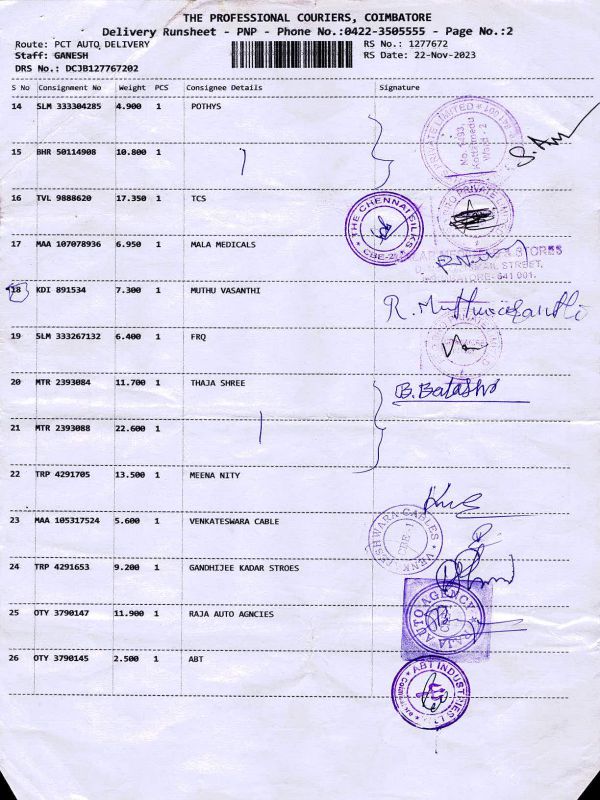 THE PROFESSIONAL COURIERS, COIMBATORE
Delivery Runsheet - PNP - Phone No.:0422-3505555 - Page No.:2
Route: PCT AUTO DELIVERY
RS No.: 1277672
Staff: GANESH
RS Date: 22-Nov-2023
DRS No.: DCJB127767202
S No Consignment No Weight PCS Consignee Details Signature
14 SLM 333304285 4.900 1 POTHYS
15 BHR 50114908 10.800 1
16 TVL 9888620 17.350 1 TCS
THE CHENNAI SILKS
CBE-
17 MAA 107078936 6.950 1 MALA MEDICALS
& STORES
STREET,
641 001.
18 KDI 891534 7.300 1 MUTHU VASANTHI
R. Muthuvasanthi
19 SLM 333267132 6.400 1 FRQ
20 MTR 2393084 11.700 1 THAJA SHREE
B. Batasha
21 MTR 2393088 22.600 1
22 TRP 4291705 13.500 1 MEENA NITY
23 MAA 105317524 5.600 1 VENKATESWARA CABLE
VENKATESHWARA CABLES
CBE-1
24 TRP 4291653 9.200 1 GANDHIJEE KADAR STROES
25 OTY 3790147 11.900 1 RAJA AUTO AGNCIES
RAJA AUTO AGENCY
26 OTY 3790145 2.500 1 ABT
ABT INDUSTRIES